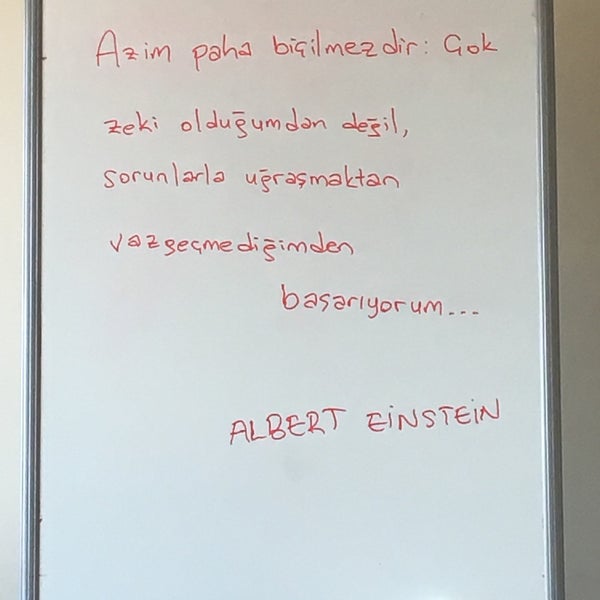 Azim paha biçilmezdir: Çok
zeki olduğumdan değil,
sorunlarla uğraşmaktan
vazgeçmediğimden
başarıyorum...
ALBERT EİNSTEİN